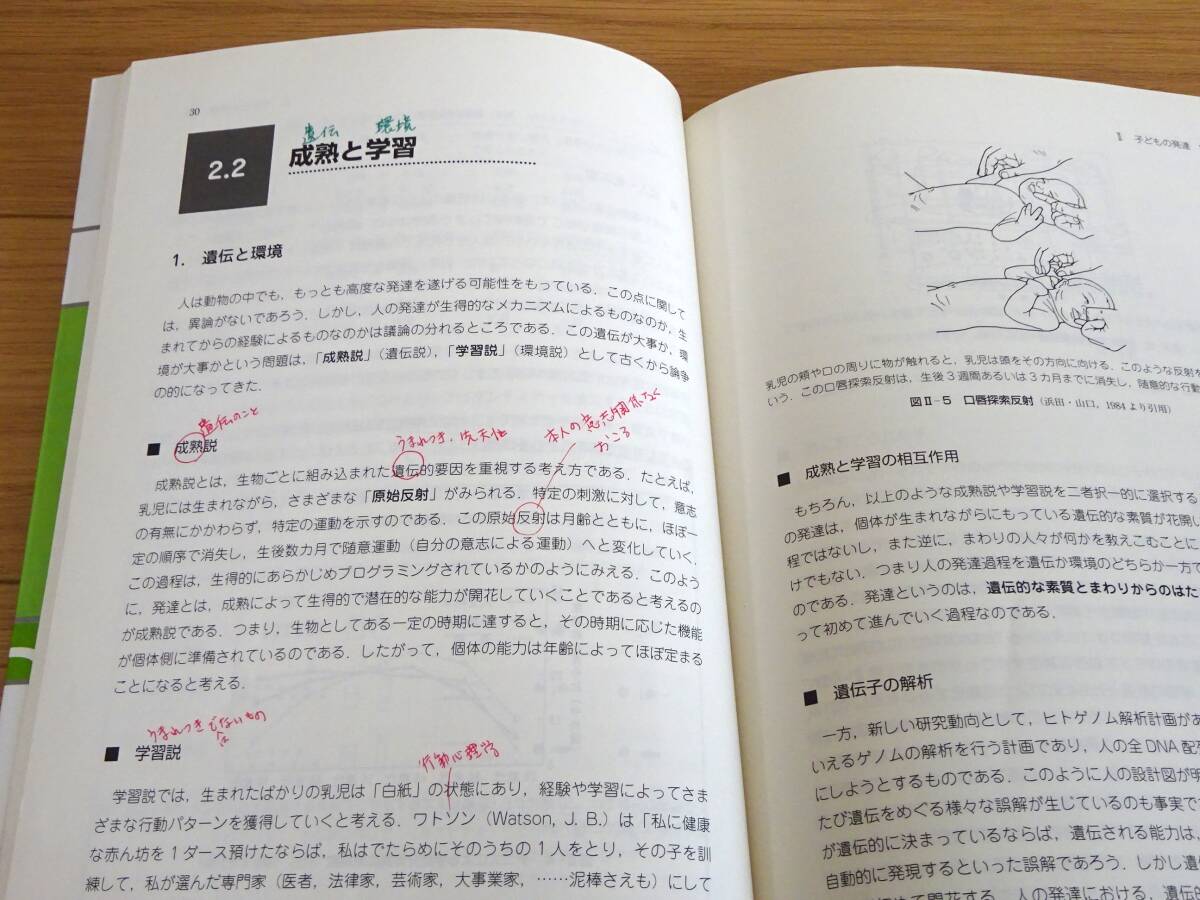 30
遺伝 環境
2.2
成熟と学習
1. 遺伝と環境
人は動物の中でも，もっとも高度な発達を遂げる可能性をもっている．この点に関して
は，異論がないであろう．しかし，人の発達が生得的なメカニズムによるものなのか，生
まれてからの経験によるものなのかは議論の分れるところである．この遺伝が大事か，環
境が大事かという問題は，「成熟説」（遺伝説），「学習説」（環境説）として古くから論争
の的になってきた．
遺伝のこと
■ 成熟説
うまれつき．先天性
本人の意志関係なく
おこる
成熟説とは，生物ごとに組み込まれた遺伝的要因を重視する考え方である．たとえば，
乳児には生まれながら，さまざまな「原始反射」がみられる．特定の刺激に対して，意志
の有無にかかわらず，特定の運動を示すのである．この原始反射は月齢とともに，ほぼ一
定の順序で消失し，生後数カ月で随意運動（自分の意志による運動）へと変化していく．
この過程は，生得的にあらかじめプログラミングされているかのようにみえる．このよう
に，発達とは，成熟によって生得的で潜在的な能力が開花していくことであると考えるの
が成熟説である．つまり，生物としてある一定の時期に達すると，その時期に応じた機能
が個体側に準備されているのである．したがって，個体の能力は年齢によってほぼ定まる
ことになると考える．
うまれつきでないもの
■ 学習説
行動心理学
学習説では，生まれたばかりの乳児は「白紙」の状態にあり，経験や学習によってさま
ざまな行動パターンを獲得していくと考える．ワトソン（Watson, J. B.）は「私に健康
な赤ん坊を1ダース預けたならば，私はでたらめにそのうちの1人をとり，その子を訓
練して，私が選んだ専門家（医者，法律家，芸術家，大事業家，……泥棒さえも）にして
Ⅱ 子どもの発達
乳児の頬や口の周りに物が触れると，乳児は頭をその方向に向ける．このような反射を
いう．この口唇探索反射は，生後3週間あるいは3カ月までに消失し，随意的な行動
図Ⅱ-5 口唇探索反射（浜田・山口，1984より引用）
■ 成熟と学習の相互作用
もちろん，以上のような成熟説や学習説を二者択一的に選択する
の発達は，個体が生まれながらにもっている遺伝的な素質が花開い
程ではないし，また逆に，まわりの人々が何かを教えこむことに
けでもない．つまり人の発達過程を遺伝か環境のどちらか一方で
のである．発達というのは，遺伝的な素質とまわりからのはた
って初めて進んでいく過程なのである．
■ 遺伝子の解析
一方，新しい研究動向として，ヒトゲノム解析計画があ
いえるゲノムの解析を行う計画であり，人の全DNA配
にしようとするものである．このように人の設計図が明
たび遺伝をめぐる様々な誤解が生じているのも事実で
が遺伝的に決まっているならば，遺伝される能力は，
自動的に発現するといった誤解であろう．しかし遺
て開花する．人の発達における，遺伝的